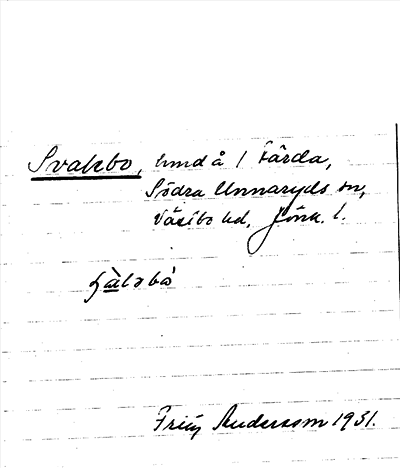 Svalebo, hmd å 1 Färda,
Södra Unnaryds sn,
Västbo hd, Jönk. l.
Fritz Andersson 1931.